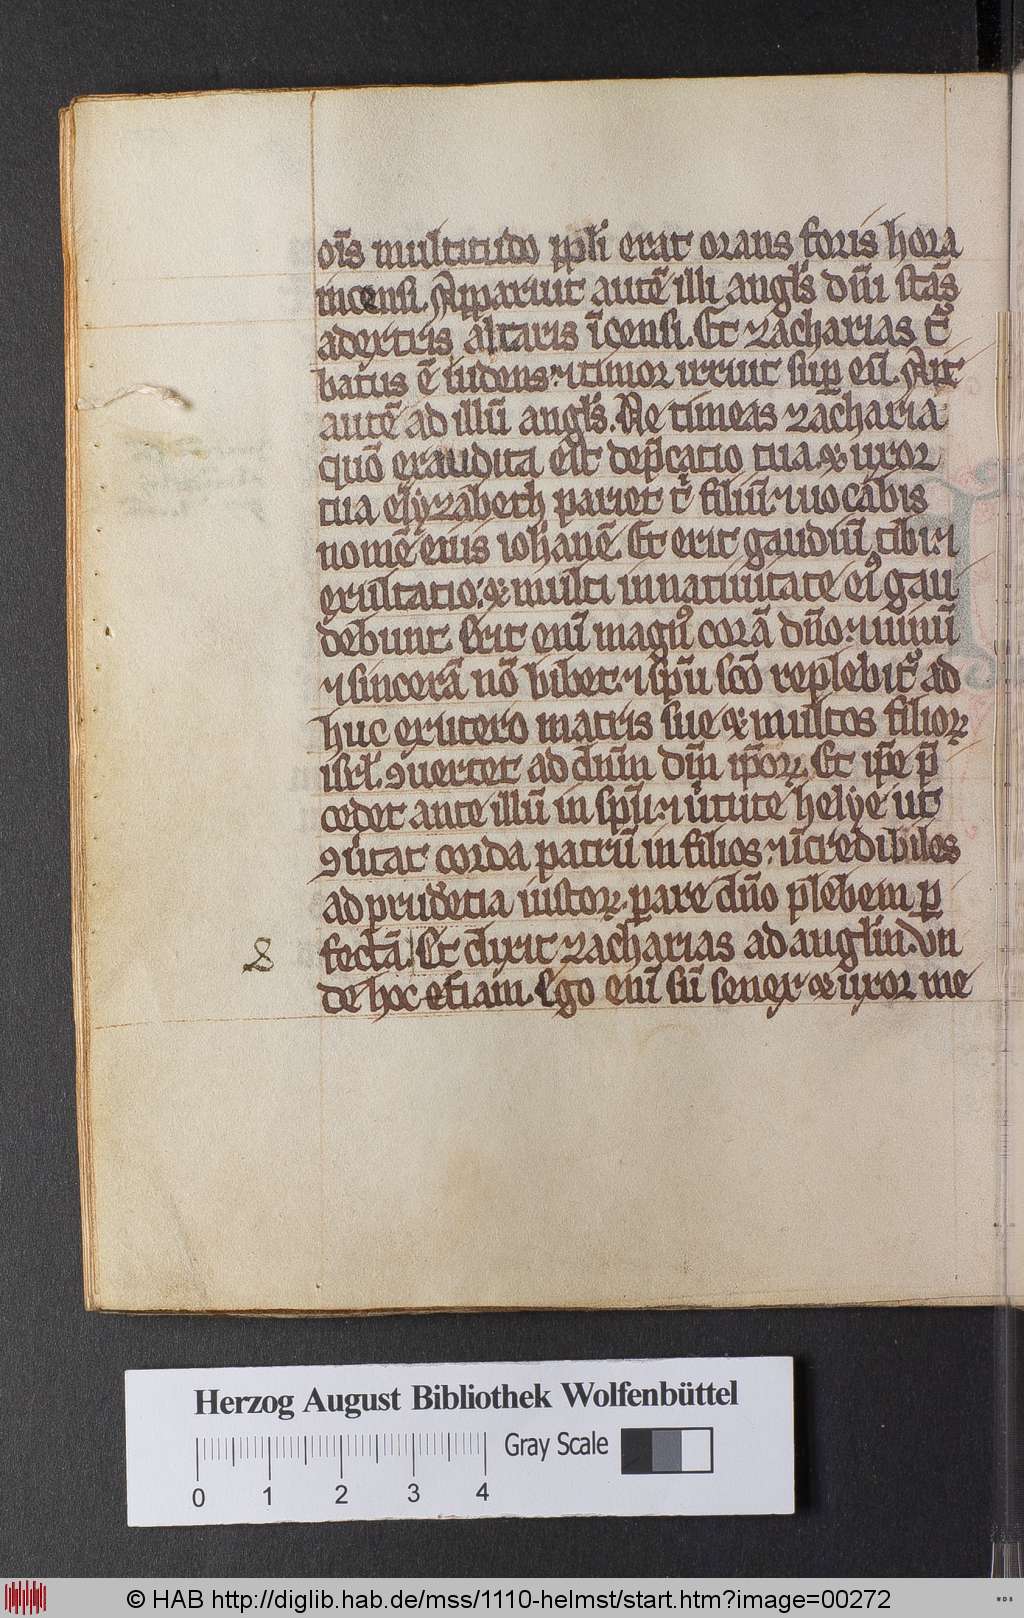 oı̄s multitudo ppl̄i erat orans foris hora
incensi. Apparuit autē illi angl̄s dn̄i stās
adextris altaris īcensi. Et zacharias t̾
batus ē uidens ⁊ timor irruit suꝑ eū. Ait
autē ad illū angl̄s. Ne timeas zacharia
quō exaudita est depͣcatio tua. ⁊ uxor
tua elyzabeth pariet tͥ filiū ⁊ uocabis
nomē eius iohannē. Et erit gaudiū tibi ⁊
exultatio: ⁊ multi in natiuitate eiꝰ gau
debunt. Erit enī magnꝰ corā dn̄o: ⁊ uinū
⁊ sincerā nō bibet: ⁊ sp̄u sc̄o replebit᷑ ad
huc ex utero matris sue ⁊ multos filioꝝ
isrl̄. ꝯuertet ad dn̄m dm̄ ip̄oꝝ. Et ip̄e p̄
cedet ante illū in sp̄u: ⁊ uͥtute helye ut
ꝯuͥtat corda patrū in filios ⁊ īcredibiles
ad prudētia iustoꝝ. parare dn̄o plebem ꝑ
fectā. Et dixit zacharias ad angl̄m. Vn
de hoc sciam. Ego enī sū senex ⁊ uxor me
Herzog August Bibliothek Wolfenbüttel
Gray Scale
0 1 2 3 4
© HAB http://diglib.hab.de/mss/1110-helmst/start.htm?image=00272